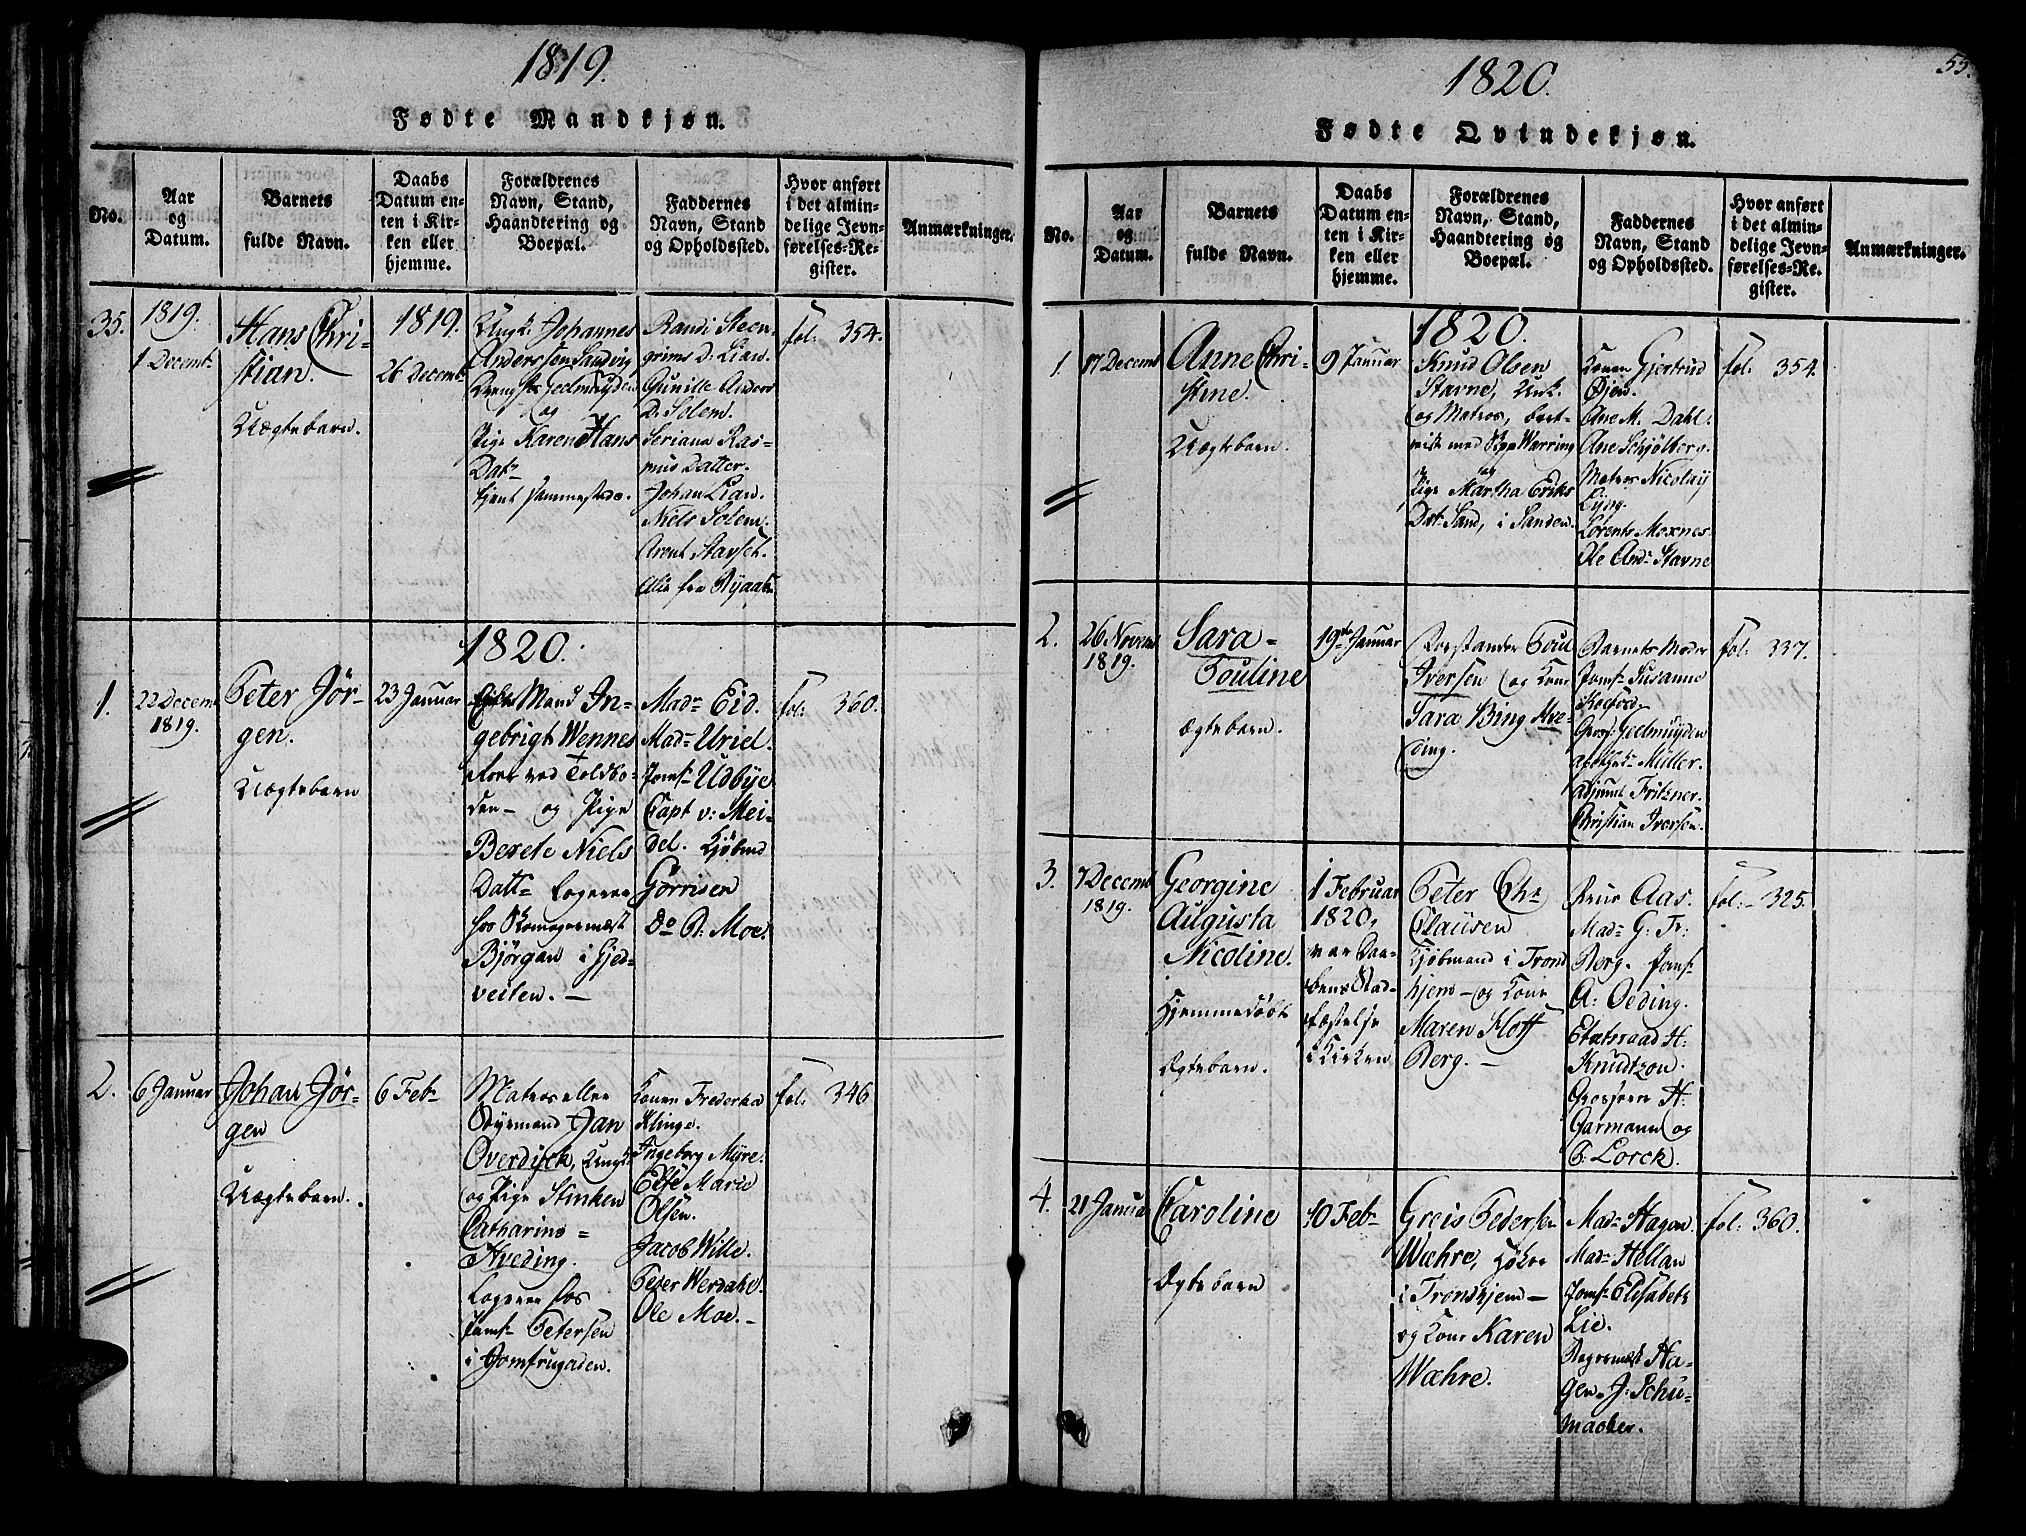 1819.
Fødte Mandkjøn.
No.
Aar
og
Datum.
Barnets
fulde Navn.
Daabs
Datum en-
ten i Kir-
ken eller
hjemme.
Forældrenes
Navn, Stand,
Haandtering og
Boepæl.
Faddernes
Navn, Stand
og Opholdssted.
Hvor anført
i det almin-
delige Jevn-
førelses-Re-
gister.
Anmærkninger.
35.
1819.
1 Decemb:
Hans Chri-
stian.
Uægtebarn.
1819.
26 Decemb:
Ungk: Johannes
Andersen Sandvig
og
Pige Karen Hans
Dat:
tjent sammested.
Randi Steen-
grims D: Lian.
Gunille Anders
D: Solem.
Seriana Ras-
mus Datter.
Johan Lian.
Niels Solem.
Arent Stavset.
Alle fra
fol: 354.
1820.
1.
22 Decemb
1819.
Peter Jör-
gen.
Uægtebarn
23 Januar
Gifte Mand In-
gebrigt Wennes
ved Toldbo-
den – og Pige
Berete Niels
Datt= logerer
hos Skomagermest
Björgan i Gjed-
veiten. –
Mad= Eid.
Mad= Uriel.
Jomf: Udbÿe
Capt v: Mei-
del. Kjöbmd
Görrisen
Do B: Moe.
fol: 360.
2.
6 Januar
Johan Jör-
gen
Uægtebarn.
6 Feb=
Matros eller
Styrmand Jan
Overdijck, Ungk:
og Pige Stinken
Catharina =
Hveding.
Logerer hos
Jomf= Petersen
i Jomfrugaden.
Konen Frederica
Klinge.
Ingeborg Mÿre.
Else Marie
Olsen.
Jacob Wille.
Peter Werdahl.
Ole Moe. –
fol: 346
1820.
55.
Fødte Qvindekjøn.
No.
Aar
og
Datum.
Barnets
fulde Navn.
Daabs
Datum en-
ten i Kir-
ken eller
hjemme.
Forældrenes
Navn, Stand,
Haandtering og
Boepæl.
Faddernes
Navn, Stand
og Opholdssted.
Hvor anført
i det almin-
delige Jevn-
førelses-Re-
gister.
Anmærkninger.
1.
17 Decemb
Anne Chri-
stine.
Uægtebarn.
9 Januar
1820.
Knud Olsen
Stavne, Unk.
og Matros, bort-
reist med Skipp Werring
og
Pige Martha Eriks
Dat: Sand, i Sanden.
Konen Gjertrud
Öjen.
Ane M. Dahl.
Ane Schjölberg.
Matros Nicolaÿ
Lÿng.
Lorents Moxnes.
Ole And= Stavne
fol: 354.
2.
26 Novemb
1819.
Sara =
Pouline
ægtebarn.
19de Januar
Poul
Iversen og Kone
Sara Bing Hve-
ding.
Barnets Moder
Jomf: Susanne
Gross: Gelmuÿden
Müller.
Adjunct Fritzner.
Christian Iversen.
fol: 337.
3.
7 Decemb
1819.
Georgine
Augusta
Nicoline.
Hjemmedöbt
Ægtebarn.
1 Februar
1820,
var Daa-
bens Stad-
fæstelse
i Kirken
Peter Ch=
Clausen
Kjöbmand i Trond
hjem – og Kone
Maren Hoff
Berg. –
Frue Aas.
Mad= G: Fr:
Berg. Jomf:
A: Oeding.
Etatsraad H:
Knudtzon.
Grosserer H:
Garmann og
P: Lorck.
fol: – 325.
4.
21 Januar
Caroline
Ægtebarn
10 Feb=
Greis Peders=
Wæhre, Höker
i Tronhjem –
og Kone Karen
Wæhre.
Mad= Hagen.
Mad= Hellan
Jomf: Elisabeth
Lie.
Bagermest Ha-
gen. J: Schu-
macher.
fol: 360.